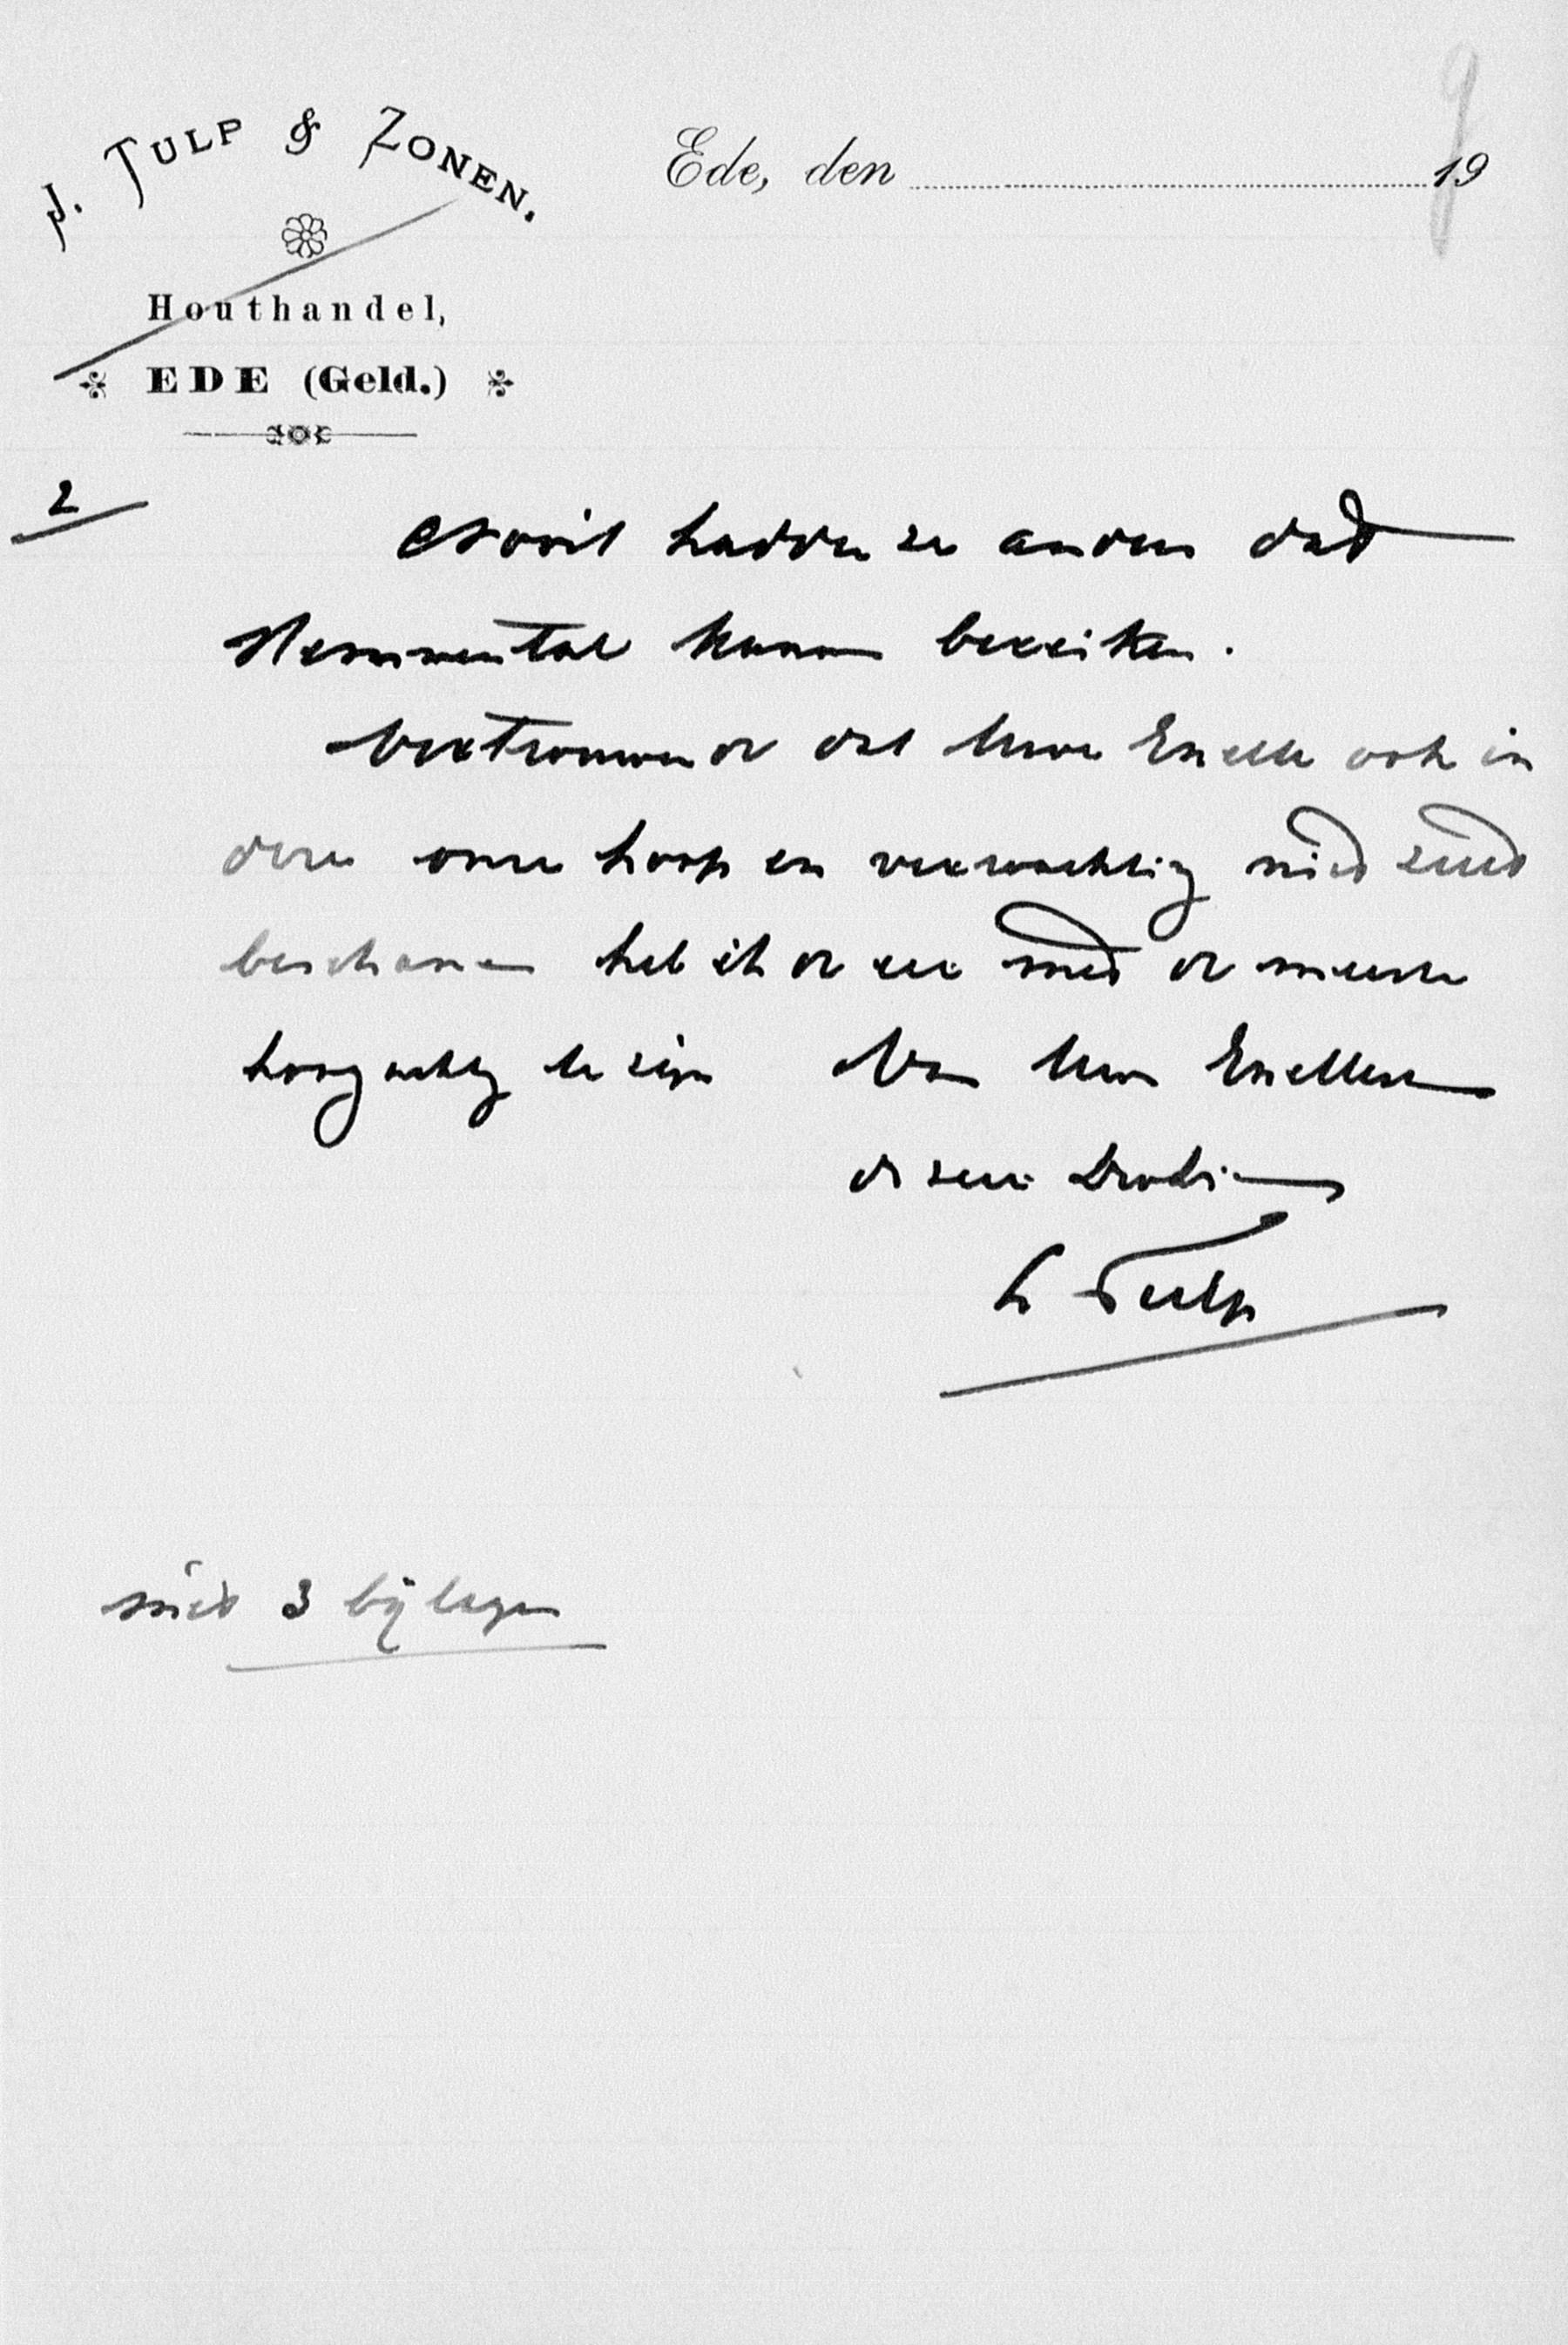 J. TULP & ZONEN.
Ede, den 19
Houthandel,
EDE (Geld.)
2
Nooit hadden ze anders dat
kunnen bereiken.
Vertrouwende dat Uwe Excell ook in
deze onze hoop en verwachting niet zult
beschamen heb ik de eer met de meeste
hoogachtg te zijn Van Uwe Excellent
de zeer Dwdr
L Tulp
met 3 bijlagen